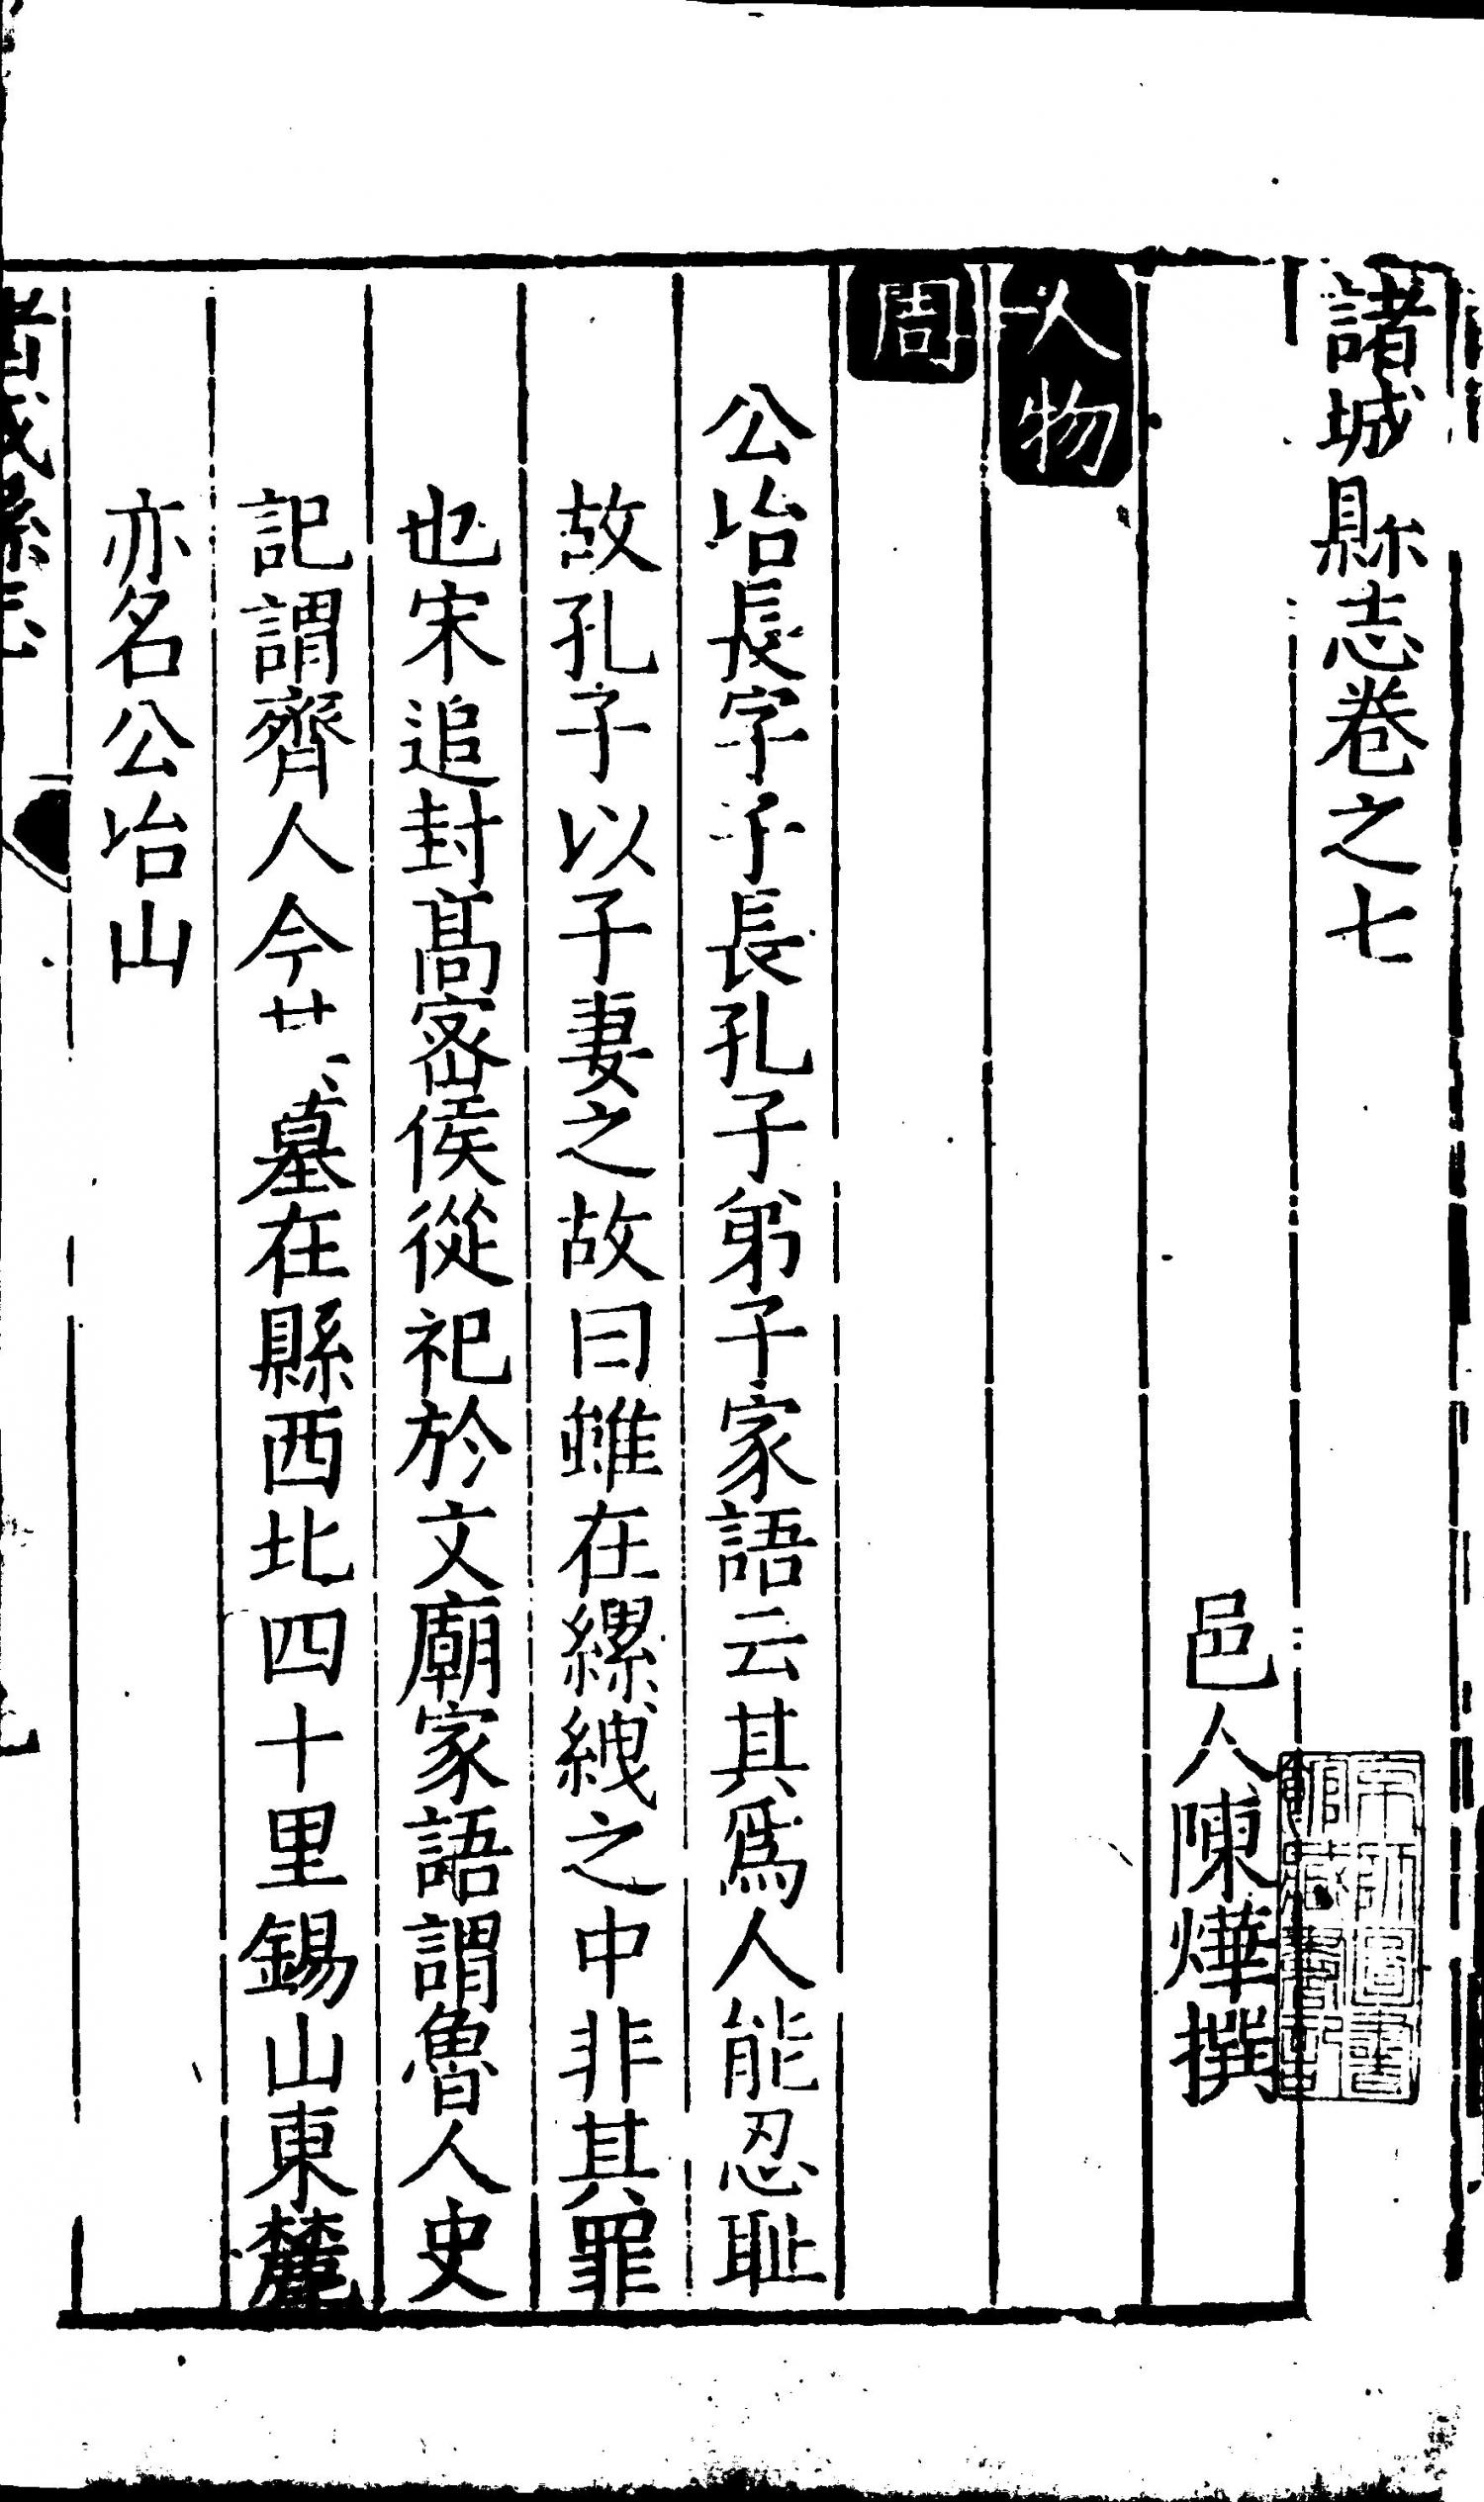 諸城縣志卷之七
邑人陳燁撰
人物
周
公冶長字子長孔子弟子家語云其爲人能忍耻
故孔子以子妻之故曰雖在縲絏之中非其罪
也宋追封髙宻侯從祀於文廟家語謂魯人史
記謂齊人今墓在縣西北四十里錫山東麓
亦名公冶山